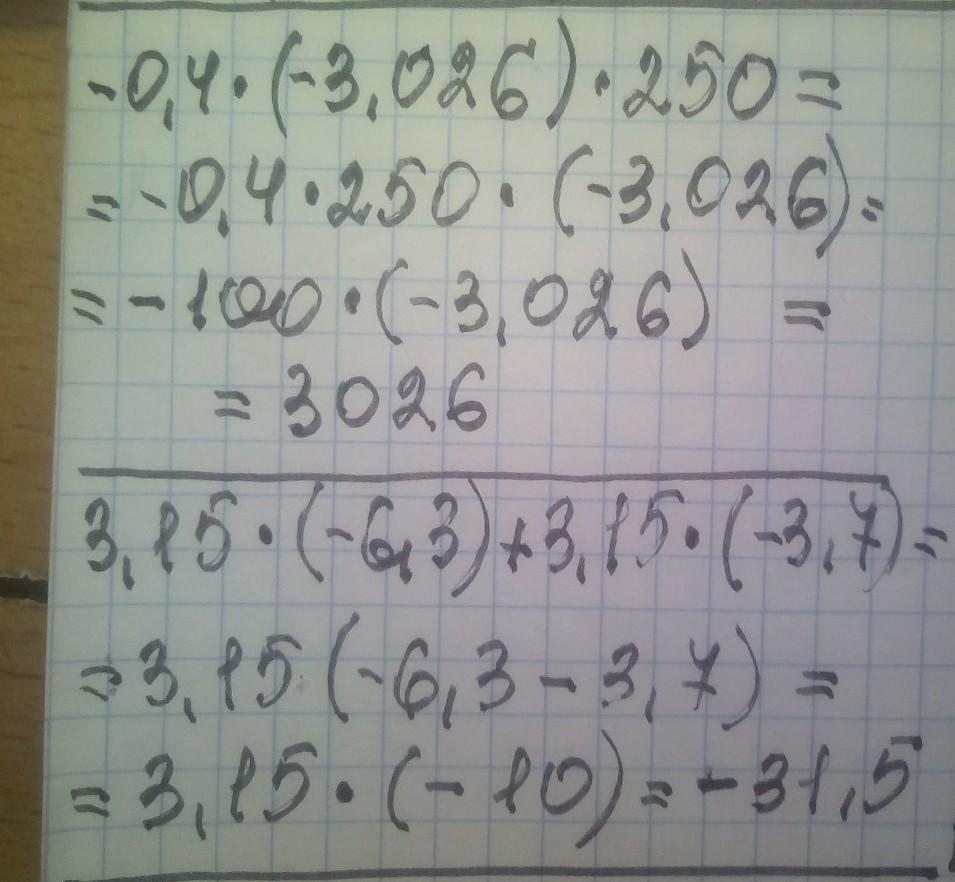 -0,4·(-3,026)·250=
=-0,4·250·(-3,026)=
=-100·(-3,026) =
=3026
3,15·(-6,3)+3,15·(-3,7)=
=3,15(-6,3-3,7)=
=3,15·(-10)=-31,5